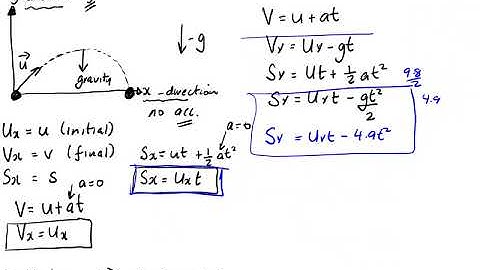 u
gravity
x-direction
no acc.
↓-g
Ux = u (initial)
Vx = v (final)
Sx = s
a=0
V = u + at
Vx = Ux
a=0
Sx = ut + 1/2 at²
Sx = Ux t
V = u + at
Vy = Uy - gt
Sy = Ut + 1/2 at²
9.8/2
4.9
Sy = Uyt - gt²/2
Sy = Uyt - 4.9t²